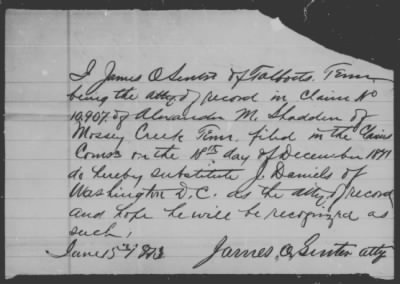 I James O Senter of Talbotts. Tenn
being the atty of record in Claim No
10,907 of Alexander M. Shadden of
Mossey Creek Tenn. filed in the Claims
Coms on the 18th day of December 1871
do hereby substitute J. Daniels of
Washington D.C. as the atty of record
and hope he will be recognized as
such,
June 15th / 1873
James, O, Senter atty